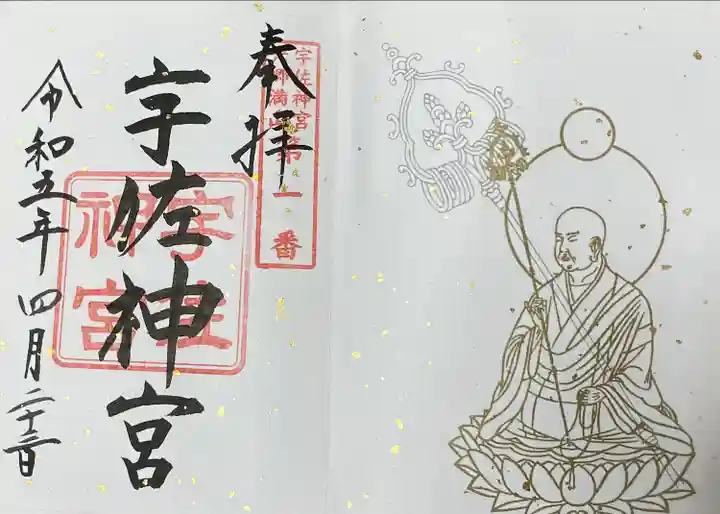 奉拝
宇佐神宮
第一番
宇佐神宮
宇佐神宮
令和五年四月二十三日